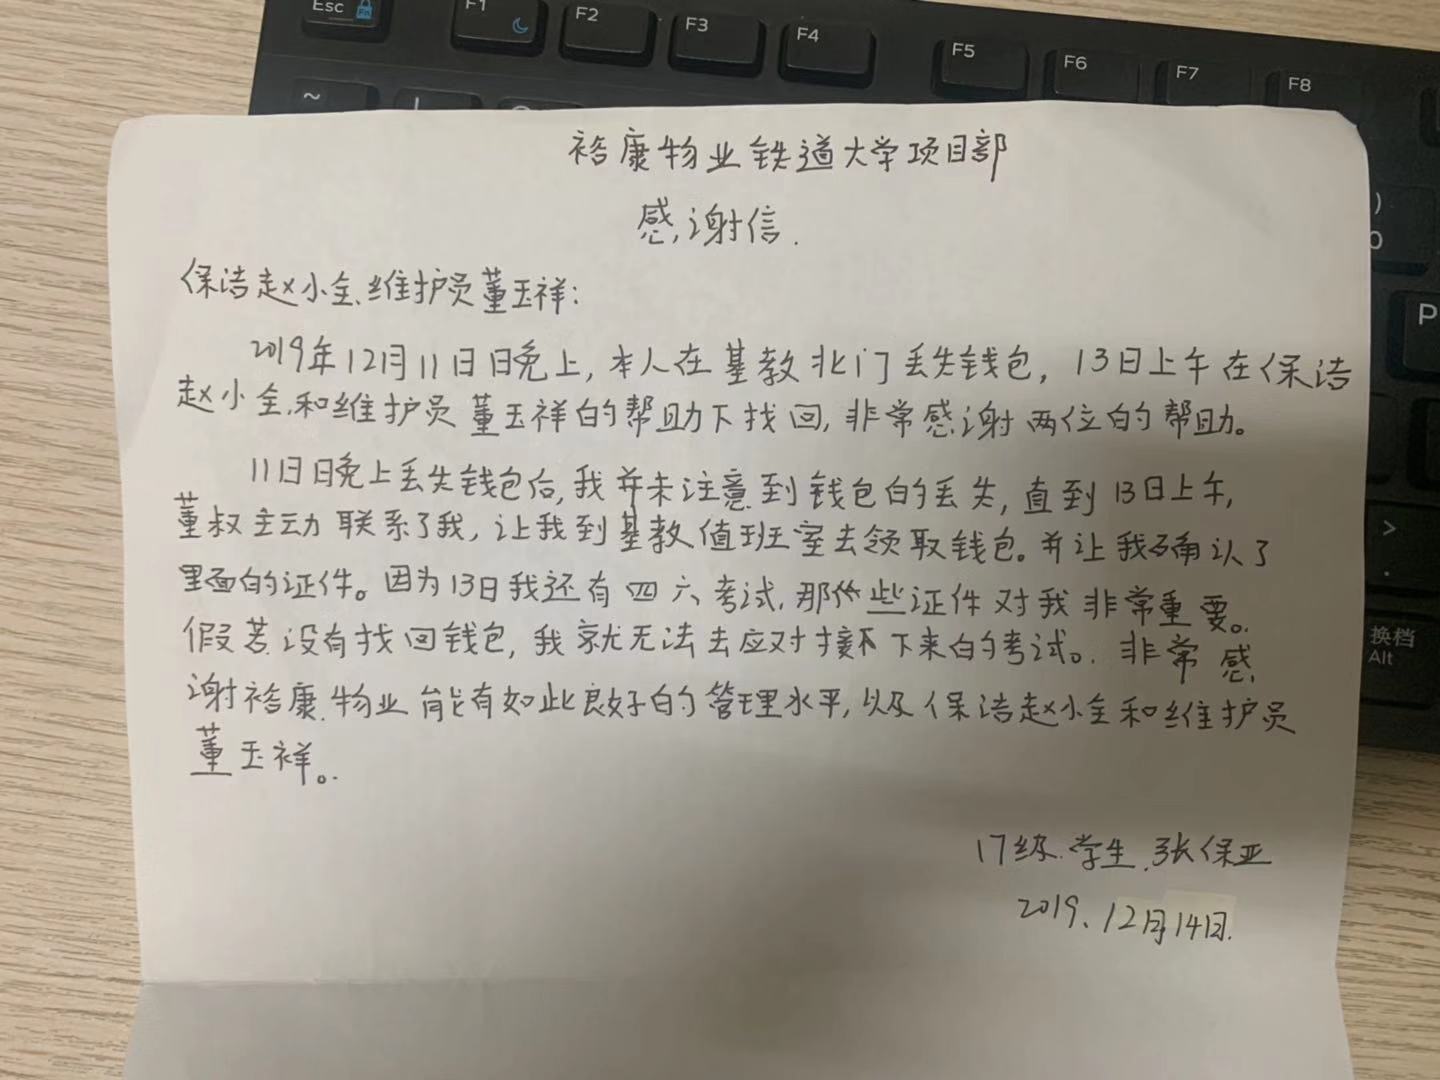 Esc Fn F1 F2 F3 F4 F5 F6 F7 F8
~
)
0
P
>
.
换档
Alt
裕康物业铁道大学项目部
感谢信.
保洁赵小全、维护员董玉祥:
2019年12月11日晚上,本人在基教北门丢失钱包,13日上午在保洁
赵小全、和维护员董玉祥的帮助下找回,非常感谢两位的帮助。
11日晚上丢失钱包后,我并未注意到钱包的丢失,直到13日上午,
董叔主动联系了我,让我到基教值班室去领取钱包。并让我确认了
里面的证件。因为13日我还有四六考试,那些证件对我非常重要。
假若没有找回钱包,我就无法去应对接下来的考试。非常感
谢裕康物业能有如此良好的管理水平,以及保洁赵小全和维护员
董玉祥。
17级学生张保亚
2019、12月14日.